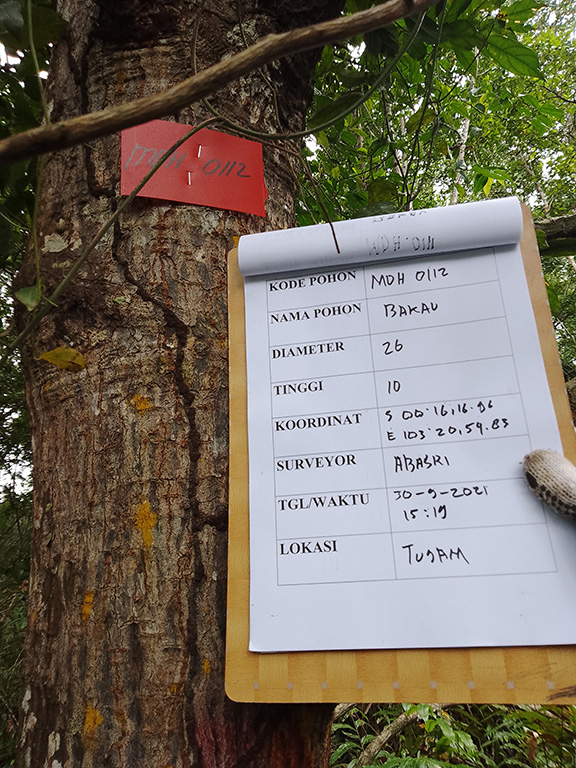 MDH 0112
MDH 0111
KODE POHON MDH 0112
NAMA POHON BAKAU
DIAMETER 26
TINGGI 10
KOORDINAT S 00°16,16.96
E 103°20,59.83
SURVEYOR ABASRI
TGL/WAKTU 30-9-2021
15:19
LOKASI TUJAM